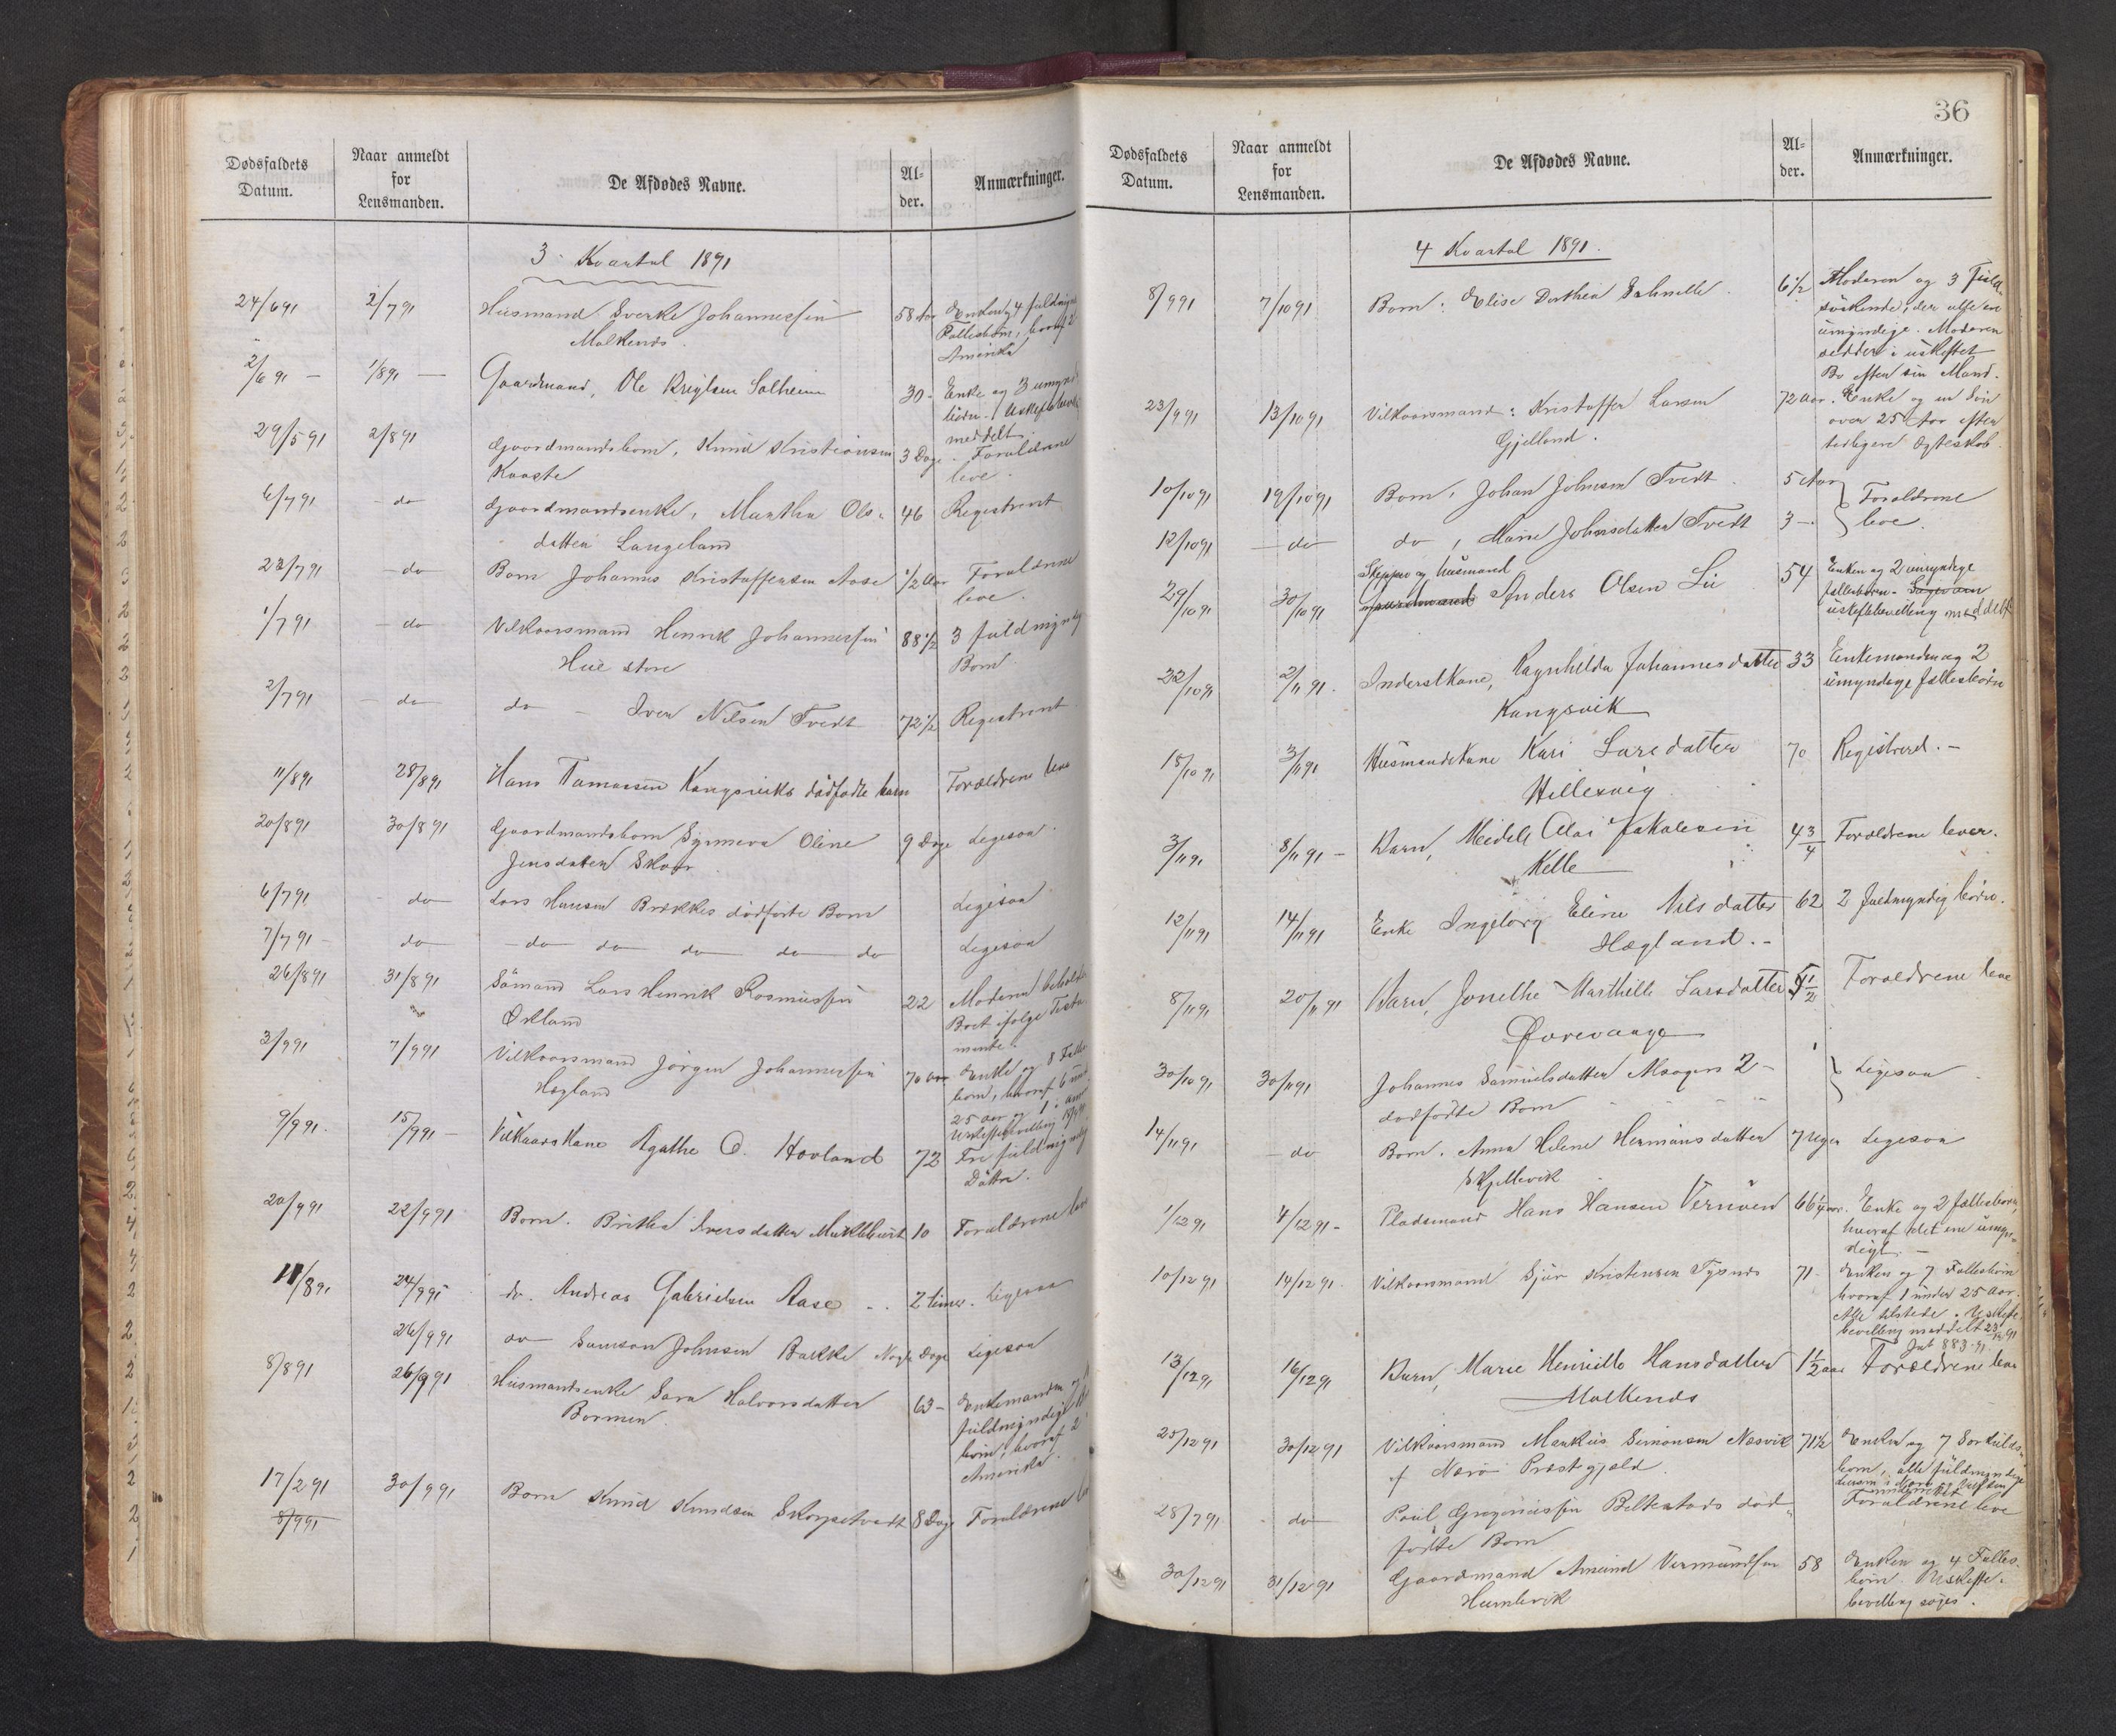 Dødsfaldets
Datum.
Naar anmeldt
for
Lensmanden.
De Afdødes Navne.
Al-
der.
Anmærkninger.
3 Kvartal 1891
24/6 91 2/7 91 Husmand Sverke Johannessen 58 Aar Enken og 4 fuldmyn
Malkenes. Fællesbørn, hvoraf 2
Amerika
2/6 91 — 1/8 91 — Gaardmand, Ole Larsen Solheim 30 - Enke og 3 umyn
børn. Uskiftebevil
meddelt
29/5 91 2/8 91 Gaardmandsbarn, Knud Kristiansen 3 Dage. Forældrene
Kaaste leve.
6/7 91 - do Gaardmandsenke, Martha Ols- 46 Registreret
datter Langeland
23/7 91 — do Barn Johannes Kristoffersen Aase 1/2 Aar Forældrene
leve.
1/7 91 — do Vilkaarsmand Henrik Johannessen 88 1/2 3 fuldmyndig
Hue store Børn.
2/7 91 — do do — Iver Nilsen Tvedt 72 1/2 Registreret
11/8 91 28/8 91 Hans Tomassen Kangsviks dødfødte barn Forældrene leve
20/8 91 30/8 91 Gaardmandsbarn Synneva Oline 9 Dage Ligesaa.
Jensdatter Skaar
6/7 91 - do Lars Hansen Brekkes dødfødte Barn Ligesaa
7/7 91 - do — do — do — do — do — do Ligesaa
26/8 91 31/8 91 Sømand Lars Henrik Rasmussen 22 Moderen beholder
Økland Boet ifølge Testa
mente.
3/9 91 7/9 91 Vilkaarsmand Jørgen Johannessen 70 Aar Enke og 8 Fælles
Hægland børn, hvoraf 6 und
25 aar og 1 i Amr
Uskiftebevilling 18/9 91
9/9 91. 15/9 91 — Vilkaarskone Agathe O. Hovland 72 Tre fuldmyndig
Døttre.
20/9 91 22/9 91 Barn. Britha Iversdatter Mukleburst 10 Forældrene leve
11/8 91 24/9 95 do. Andreas Gabrielsen Aase .. 2 timer. Ligesaa
26/9 91 do — Samson Johnsen Bakke Nogle Dage Ligesaa
8/8 91 26/9 91 Husmandsenke Sara Halvorsdatter 63 — Enkemanden og
Bormen. fuldmyndige
børn, hvoraf 2
Amerika.
17/2 91 30/9 91 Barn Knud Knudsen Skorpetvedt 8 Dage Forældrene leve
8/9 91
36
Dødsfaldets
Datum.
Naar anmeldt
for
Lensmanden.
De Afdødes Navne.
Al-
der.
Anmærkninger.
4 Kvartal 1891.
8/9 91 7/10 91 Barn: Elise Dorthea Schnelle. 6 1/2 Moderen og 3 Fuld-
søskende, der alle ere
umyndige. Moderen
sidder i uskiftet
Bo efter sin Mand.
23/9 91 13/10 91 Vilkaarsmand: Kristoffer Larsen 72 Aar. Enke og en Søn
Gjelland. over 25 Aar efter
tidligere Ægteskab.
10/10 91 19/10 91 Barn, Johan Johnsen Tvedt. 5 Aar Forældrene
12/10 91 — do — do, Marie Johnsdatter Tvedt 3 — leve.
29/10 91 30/10 91 Skipper og husmand
Gaardmand Anders Olsen Lie 54 Enken og 2 umyndige
fællesbørn - Søger om
uskiftebevilling meddelt
22/10 91 2/11 91. Inderstkone, Ragnhilda Johannesdatter 33 Enkemanden og 2
Kangsvik umyndige fællesbørn
18/10 91 3/11 91 Husmandskone Kari Larsdatter 70 Registrerd. —
Hillesvig
3/11 91 8/11 91 — Barn, Meidell Olai Jakobsen 4 3/4 Forældrene lever.
Kelle
12/11 91 14/11 91 Enke Ingeborg Eline Nilsdatter 62 2 fuldmyndig børn.
Hægland. -
8/11 91 20/11 91 Barn, Jonethe Marthille Larsdatter 5 1/2 Forældrene leve
Øvrevaage
30/10 91 30/11 91 Johannes Samuelsdatter Maagen 2 — Ligesaa
dødfødte Børn
14/11 91 — do Barn. Anna Helene Hermansdatter 7 Uger Ligesaa
Skjellevik
1/12 91 4/12 91 — Pladsmand Hans Hansen Vernøen 66 1/4 aar. Enke og 2 fællesbørn,
hvoraf det ene umyn-
digt. —
10/12 91 14/12 91. Vilkaarsmand Sjur Kristensen Tysnes 71. Enken og 7 Fællesbørn
hvoraf 1 under 25 Aar.
Alle tilstede. Uskifte-
bevilling meddelt 23/12 91
Jnl 883.91
13/12 91 16/12 91 Barn, Marie Henriette Hansdatter 1 1/2 aar Forældrene leve
Malkenes
25/12 91 30/12 91 Vilkaarsmand Markus Simonsen Næsvik 71 1/2 Enken og 7 Særkulds-
af Nærø Præstegjæld. børn, alle fuldmyndige
28/7 91 — do Poul Gregoriussen Beltestads død- Forældrene leve
fødte Barn
30/12 91 31/12 91 Gaardmand Amund Vermundsen 58 Enken og 4 Fælles-
Humlevik børn. Uskifte-
bevilling søges.